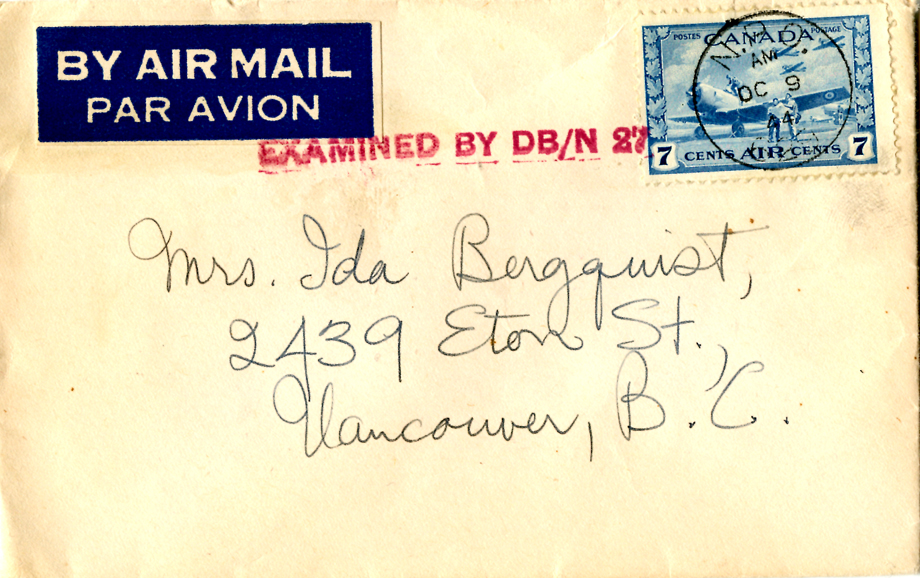 BY AIR MAIL
PAR AVION
POSTES CANADA POSTAGE
N.P.O.
AM
OC 9
EXAMINED BY DB/N 27
7 CENTS AIR CENTS 7
Mrs. Ida Bergquist,
2439 Eton St.,
Vancouver, B.C.